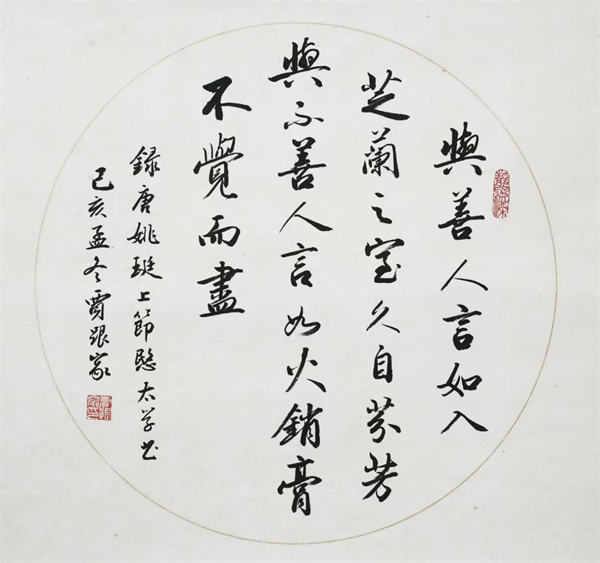 與善人言如入
芝蘭之室久自芬芳
與不善人言如火銷膏
不覺而盡
録唐姚珽上節愍太子書
己亥孟冬賈跟家